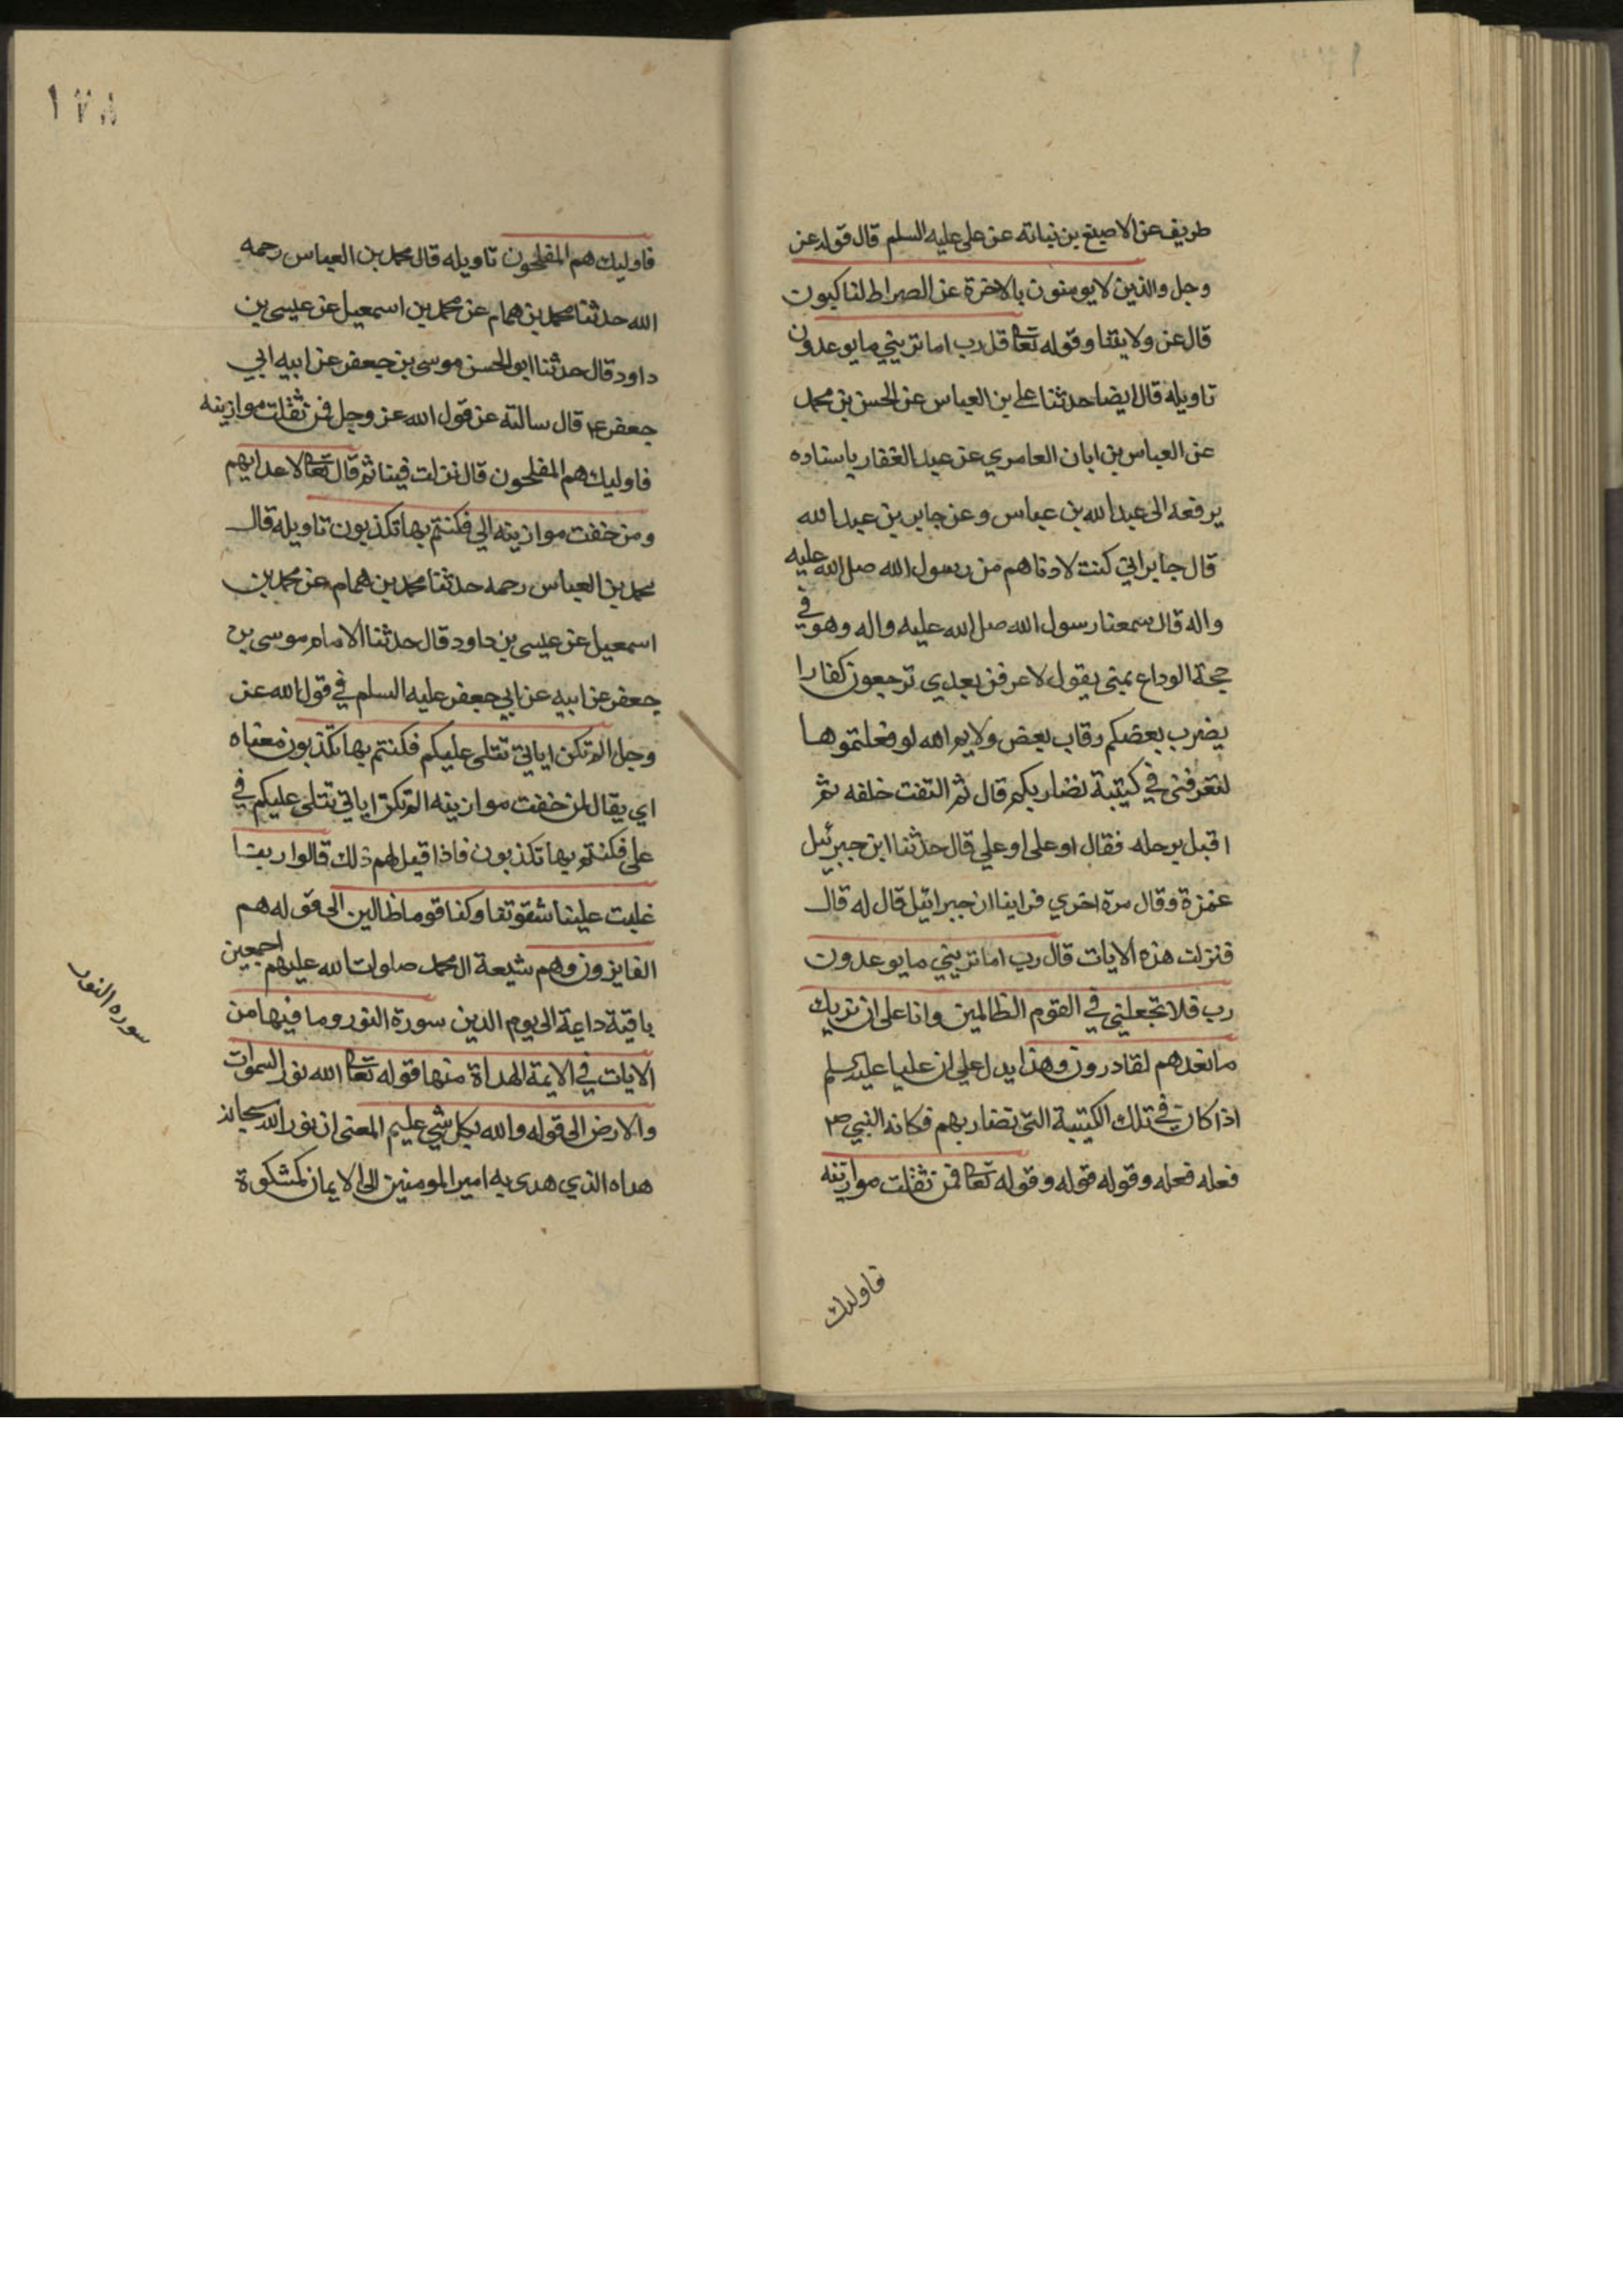 طريف عن الاصبغ بن نباته عن علي عليه السلم قال قوله عز
وجل والذين لا يومنون بالاخرة عن الصراط لناكبون
قال عن ولايتنا وقوله تعا قل رب اما تريني ما يوعدون
تاويله قال ايضا حدثنا علي بن العباس عن الحسن بن محمد
عن العباس بن ابان العامري عن عبد الغفار باسناده
يرفعه الى عبد الله بن عباس وعن جابر بن عبد الله
قال جابر اني كنت لادناهم من رسول الله صلى الله عليه
واله قال سمعنا رسول الله صلى الله عليه واله وهو في
حجة الوداع بمنى يقول لاعرفن بعدي ترجعون كفارا
يضرب بعضكم رقاب بعض ولايم الله لو فعلتموها
لتعرفنى في كتيبة نضاربكم قال ثم التفت خلفه ثم
اقبل بوجهه فقال او علي او علي قال حدثنا ان جبرئيل
غمزة وقال مرة اخري فراينا ان جبرائيل قال له قال
فنزلت هذه الايات قال رب اما تريني ما يوعدون
رب فلا تجعلني في القوم الظالمين وانا على ان نريك
ما نعدهم لقادرون وهذا يدل على ان عليا عليه السلم
اذا كان في تلك الكتيبة التى تضاربهم فكانه النبي ص
فعله فعله وقوله قوله وقوله تعا فمن ثقلت موازينه
فاوليك
١٧٨
فاوليك هم المفلحون تاويله قال محمد بن العباس رحمه
الله حدثنا محمد بن همام عن محمد بن اسمعيل عن عيسى بن
داود قال حدثنا ابو الحسن موسى بن جعفر عن ابيه ابي
جعفر ع قال سالته عن قول الله عز وجل فمن ثقلت موازينه
فاوليك هم المفلحون قال نزلت فينا ثم قال تعا لاعدايهم
ومن خفت موازينه الي فكنتم بها تكذبون تاويله قال
محمد بن العباس رحمه حدثنا محمد بن همام عن محمد بن
اسمعيل عن عيسى بن داود قال حدثنا الامام موسى بن
جعفر عن ابيه عن ابي جعفر عليه السلم في قول الله عز
وجل الم تكن اياتي تتلى عليكم فكنتم بها تكذبون معناه
اي يقال لمن خفت موازينه الم تكن اياتي تتلى عليكم في
علي فكنتم بها تكذبون فاذا قيل لهم ذلك قالوا ربنا
غلبت علينا شقوتنا وكنا قوما ظالين الى قوله هم
الفايزون وهم شيعة ال محمد صلوات الله عليهم اجمعين
باقية داعية الى يوم الدين سورة النور وما فيها من
الايات في الايمة الهداة منها قوله تعا الله نور السموات
والارض الى قوله والله بكل شي عليم المعنى ان نور الله سبحانه
هداه الذي هدى به امير المومنين الى الايمان كمشكوة
سوره النور